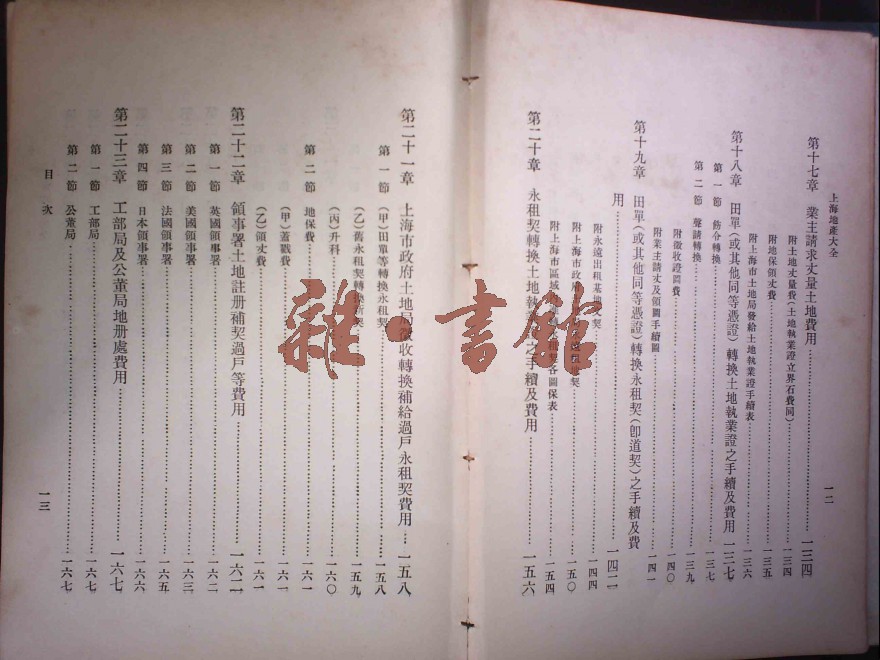 上海地產大全
一二
第十七章 業主請求丈量土地費用⋯⋯一三四
附土地丈量費(土地執業證立界石費同)⋯⋯一三四
附地保領丈費⋯⋯一三五
附上海市土地局發給土地執業證手續表⋯⋯一三六
第十八章 田單(或其他同等憑證)轉換土地執業證之手續及費用⋯⋯一三七
第一節 飭令轉換⋯⋯一三七
第二節 聲請轉換⋯⋯一三九
附徵收證圖費⋯⋯一四〇
附業主請丈及領圖手續圖⋯⋯一四一
第十九章 田單(或其他同等憑證)轉換永租契(卽道契)之手續及費
用⋯⋯一四二
附永遠出租基地 契⋯⋯一四四
附上海市政府 契⋯⋯一五〇
附上海市區域內 各圖保表⋯⋯一五四
第二十章 永租契轉換土地執業證之手續及費用⋯⋯一五六
第二十一章 上海市政府土地局徵收轉換補給過戶永租契費用⋯⋯一五八
第一節 (甲)田單等轉換永租契⋯⋯一五八
(乙)舊永租契轉換新契⋯⋯一五九
(丙)升科⋯⋯一六〇
第二節 地保費⋯⋯一六一
(甲)蓋戳費⋯⋯一六一
(乙)領丈費⋯⋯一六一
第二十二章 領事署土地註册補契過戶等費用⋯⋯一六二
第一節 英國領事署⋯⋯一六二
第二節 美國領事署⋯⋯一六三
第三節 法國領事署⋯⋯一六五
第四節 日本領事署⋯⋯一六六
第二十三章 工部局及公董局地册處費用⋯⋯一六七
第一節 工部局⋯⋯一六七
第二節 公董局⋯⋯一六七
目次
一三
雜·書館